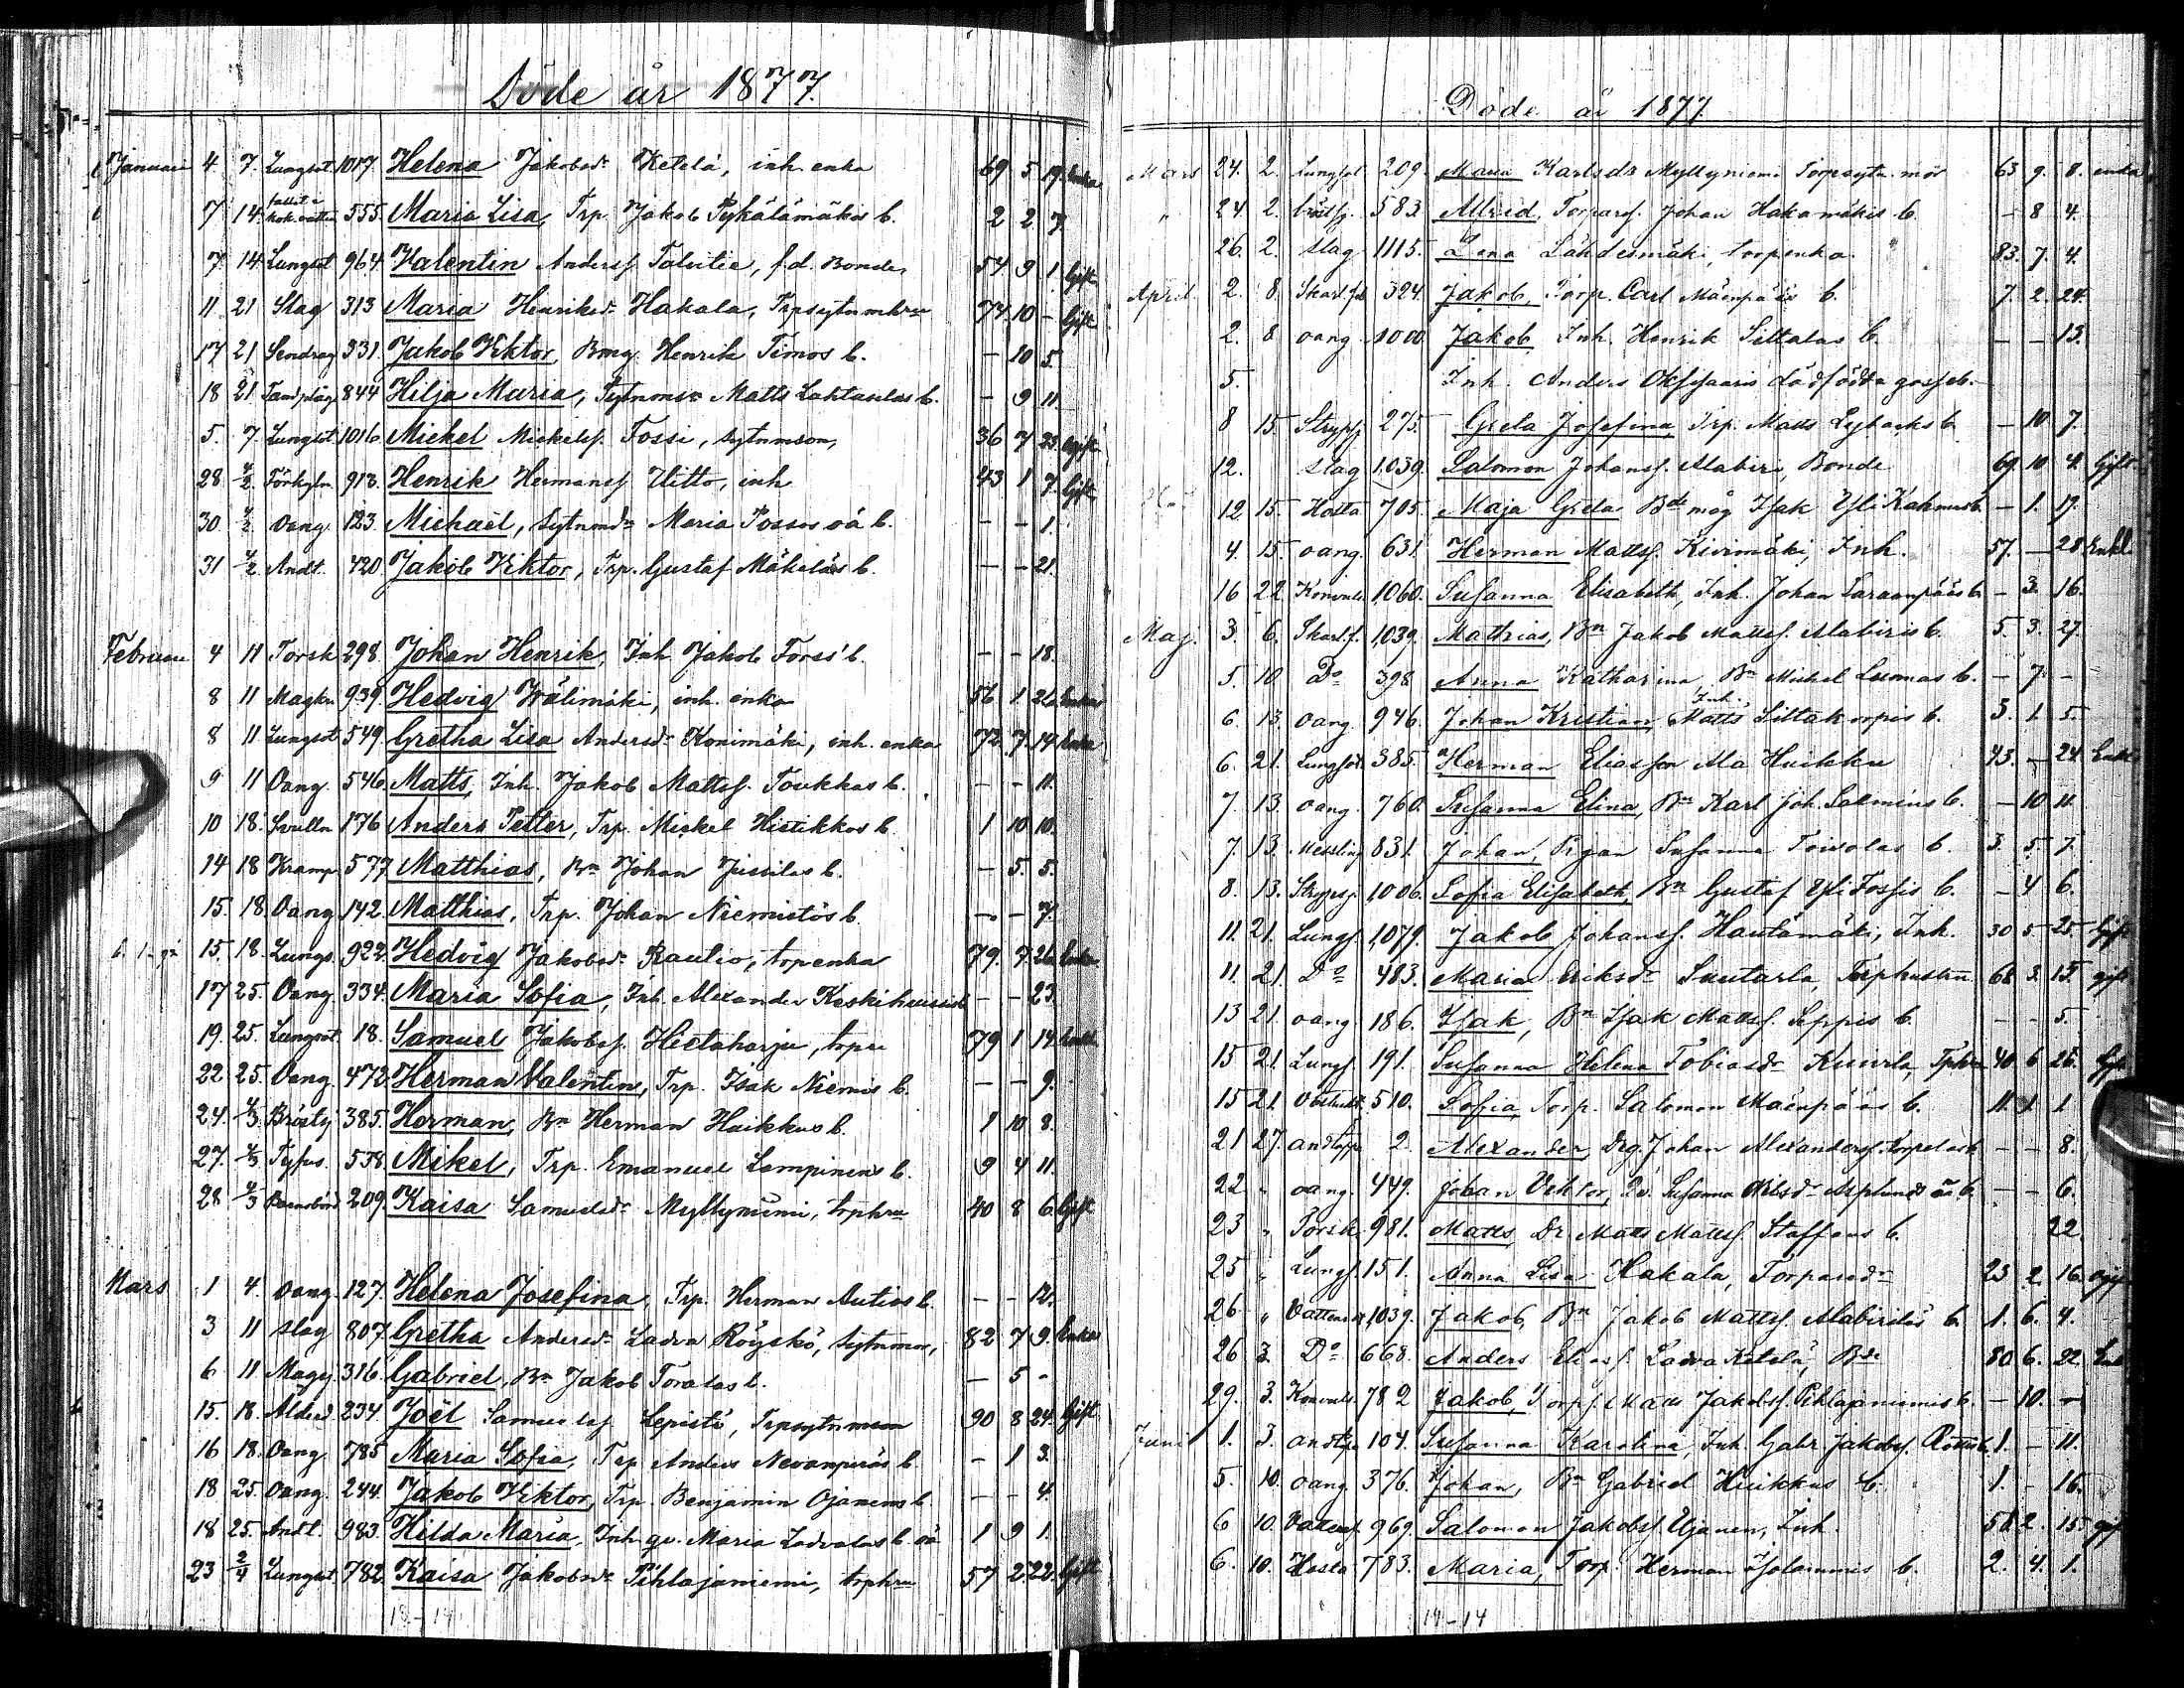 Döde år 1877.
Januari 4. 7. Lungsot 1017. Helena Jakobsd. Ketelä, inh. enka 69 5 19 Enka
7 14. fallit i hok vatten 555. Maria Lisa, Trp. Jakob Pykälämäkis b. 2 2 7
7 14 Lungsot 964 Valentin Anderss. f.d. Bonde, 54 9 1. Gift
11 21 Slag 313 Maria Henriksd. Hakala, 74 10 - Gift
17 21 331. Jakob Viktor, Henrik Timos b. - 10 5.
18 21. Tandplåg 844 Hilja Maria, Matts b. - 9 11.
5. 7. Lungsot 1016. Mickel Mickelss. Fossi, sytnmson, 36 7 23. ogift
28 4/2. Förkyln. 913. Henrik Hermanss. inh 43 1 7. Gift
30 4/2. Oang. 123. Michaël, Maria oä b. - - 1.
31 4/2. Andt. 420 Jakob Viktor, Trp. Gustaf Mäkeläs b. - - 21.
Februari 4 11 Torsk 298. Johan Henrik, Inh. Jakob Forss' b. - - 18.
8 11 Magkn. 939. Hedvig Wälimäki, inh. enka 56 1 26. Enka
8 11 Lungsot 549. Gretha Lisa Andersd. Konimäki, inh. enka 72. 7. 14. Enka
9 11 Oang. 546. Matts, Inh. Jakob Mattss. Toukkas b. - - 11.
10 18. Svulln 176 Anders Petter, Trp. Mickel Histikkos b. 1 10 10.
14 18 Kramp. 577. Matthias, Bn Johan Jussilas b. - 5. 5.
15. 18. Oang. 142. Matthias, Trp. Johan Niemistös b. - - 7.
15. 18. Lungs. 922. Hedvig Jakobsd. Rautio, torpenka 79. 7 26. Enka
17 25. Oang. 334. Maria Sofia, Inh. Alexander - - 23.
19. 25. Lungsot. 18. Samuel Jakobss. Hietaharju, 79 1 14. Enkl.
22 25. Oang. 472. Herman Valentin, Trp. Isak Niemis b. - - 9.
24. 4/3 Brösty 385. Herman, Bn Herman Huikkus b. 1 10 8.
27. 4/3 Tyfus. 538. Mikel, Trp. Emanuel Lampinens b. 9 4 11.
28 4/3 Barnsbörd 209. Kaisa Samuelsd. Myllyniemi, torphu 40 8 6. Gift
Mars 1 4. Oang. 127. Helena Josefina, Trp. Herman Autios b. - - 12.
3 11 slag 807. Gretha Andersd. Ladva Röyskö, 82 7 9. Enka
6 11 Magy. 316. Gabriel, Bn Jakob b. - 5 -
15. 18. Alderd. 234. Joël Samuelss. Lepistö, 90 8 24. Gift
16 18. Oang. 785 Maria Sofia, Trp. Anders Nevanperäs b. - 1 3.
18 25. Oang. 244. Jakob Viktor, Trp. Benjamin Ojanens b. - - 4.
18 25. Andt. 983. Hilda Maria, Inh. qv. Maria Ladvalas b. oä 1 9 1.
23 2/4 Lungsot. 782. Kaisa Jakobsd. Pihlajaniemi, torphu 57 2. 22. Gift
13-14
Döde år 1877.
Mars 24. 2. Lungsot 209. Maria Karlsdr Myllyniemi mor 63 9. 8. enka
" 24. 2. 583. Alfrid, Torpars. Johan Hakamäkis b. - 8 4.
26. 2. slag 1115. Lena Lähdesmäki, torpenka. 83. 7. 4.
April. 2. 8. Skarl. feb 324. Jakob, Torp. Carl Mäenpääs b. 7. 2. 24.
2. 8 oang. 1000. Jakob, Inh. Henrik Siltalas b. - - 13.
5. Inh. Anders dödfödda gosseb.
8 15. Strypsj. 275. Greta Josefina, Trp. Matts b. - 10 7.
12. slag 1039. Salomon Johanss. Alabiri, Bonde 69. 10 4. Gift
12. 15. Hosta 705. Maja Greta Bde måg Isak Yli b. - 1. 17.
4. 15. oang. 631. Herman Mattss. Kivimäki, Inh. 57. - 28 Enkl.
16 22. Konvuls. 1060. Susanna Elisabeth, Inh. Johan b. - 3. 16.
Maj. 3. 6. Skarl. f. 1039. Mathias, Bn Jakob Mattss. Alabiris b. 5. 3. 27.
5. 10 Do 398 Anna Katharina, Bn Mickel Luomas b. - 7. -
6. 13. oang. 946. Johan Kristian, Inh. Matts Siltakorpis b. 3. 1. 5.
6. 21. Lungsot. 385. Herman Eliasson Ala Huikku 43. - 24 Enkl.
7. 13. oang. 760. Susanna Elina, Bn Karl Joh. Salmins b. - 10 11.
7. 13. Messling 831. Johan, Pigan Susanna Toivolas b. 3. 5. 7.
8. 13. Strypsj. 1006. Sofia Elisabeth, Bn Gustaf Yli Fossis b. - 4 6.
11. 21. Lungs. 1079. Jakob Johanss. Hautamäki, Inh. 30 5 25. Gift
11. 21. Do 483. Maria Eriksdr Suutarla, Torphustru 68. 3. 15. gift
13 21. oang 186. Isak, Bn Isak Mattss. Seppis b. - - 5.
15 21. Lungs. 191. Susanna Helena Tobiasdr 40 6 25. Gift
15 21. 510. Sofia, Torp. Salomon Mäenpääs b. 11. 1 1
21 27. andtäppa 2. Alexander, Johan Alexanderss. b. - - 8.
22 " oang. 449. Johan Viktor, Qv. Susanna Nilsdr b. - - 6.
23 " Torsk 981. Matts, Dr Matts Mattss. Staffans b. 22
25 " Lungs. 151. Anna Lisa Hakala, Torparedr 23 2 16. ogift
26 " 1039. Jakob, Bn Jakob Mattss. b. 1. 6. 4.
26 3. Do 668. Anders Eliass. Ladva Ketelä, Bde 80 6. 22. Enkl
29. 3. Konvuls. 782 Jakob, Torps. Matts Jakobss. Pihlajaniemis b. - 10. -
Juni 1. 3. andtäppa 104. Susanna Karolina, Inh. Gabr. Jakobss. b. 1. - 11.
5. 10. oang 376. Johan, Bn Gabriel Huikkus b. 1. - 16.
6 10. Vattens. 969. Salomon Jakobss. Ujanen, Inh. 58. 2. 15. gift
6. 10. Hosta 783. Maria, Torp. Herman b. 2. 4. 1.
14-14